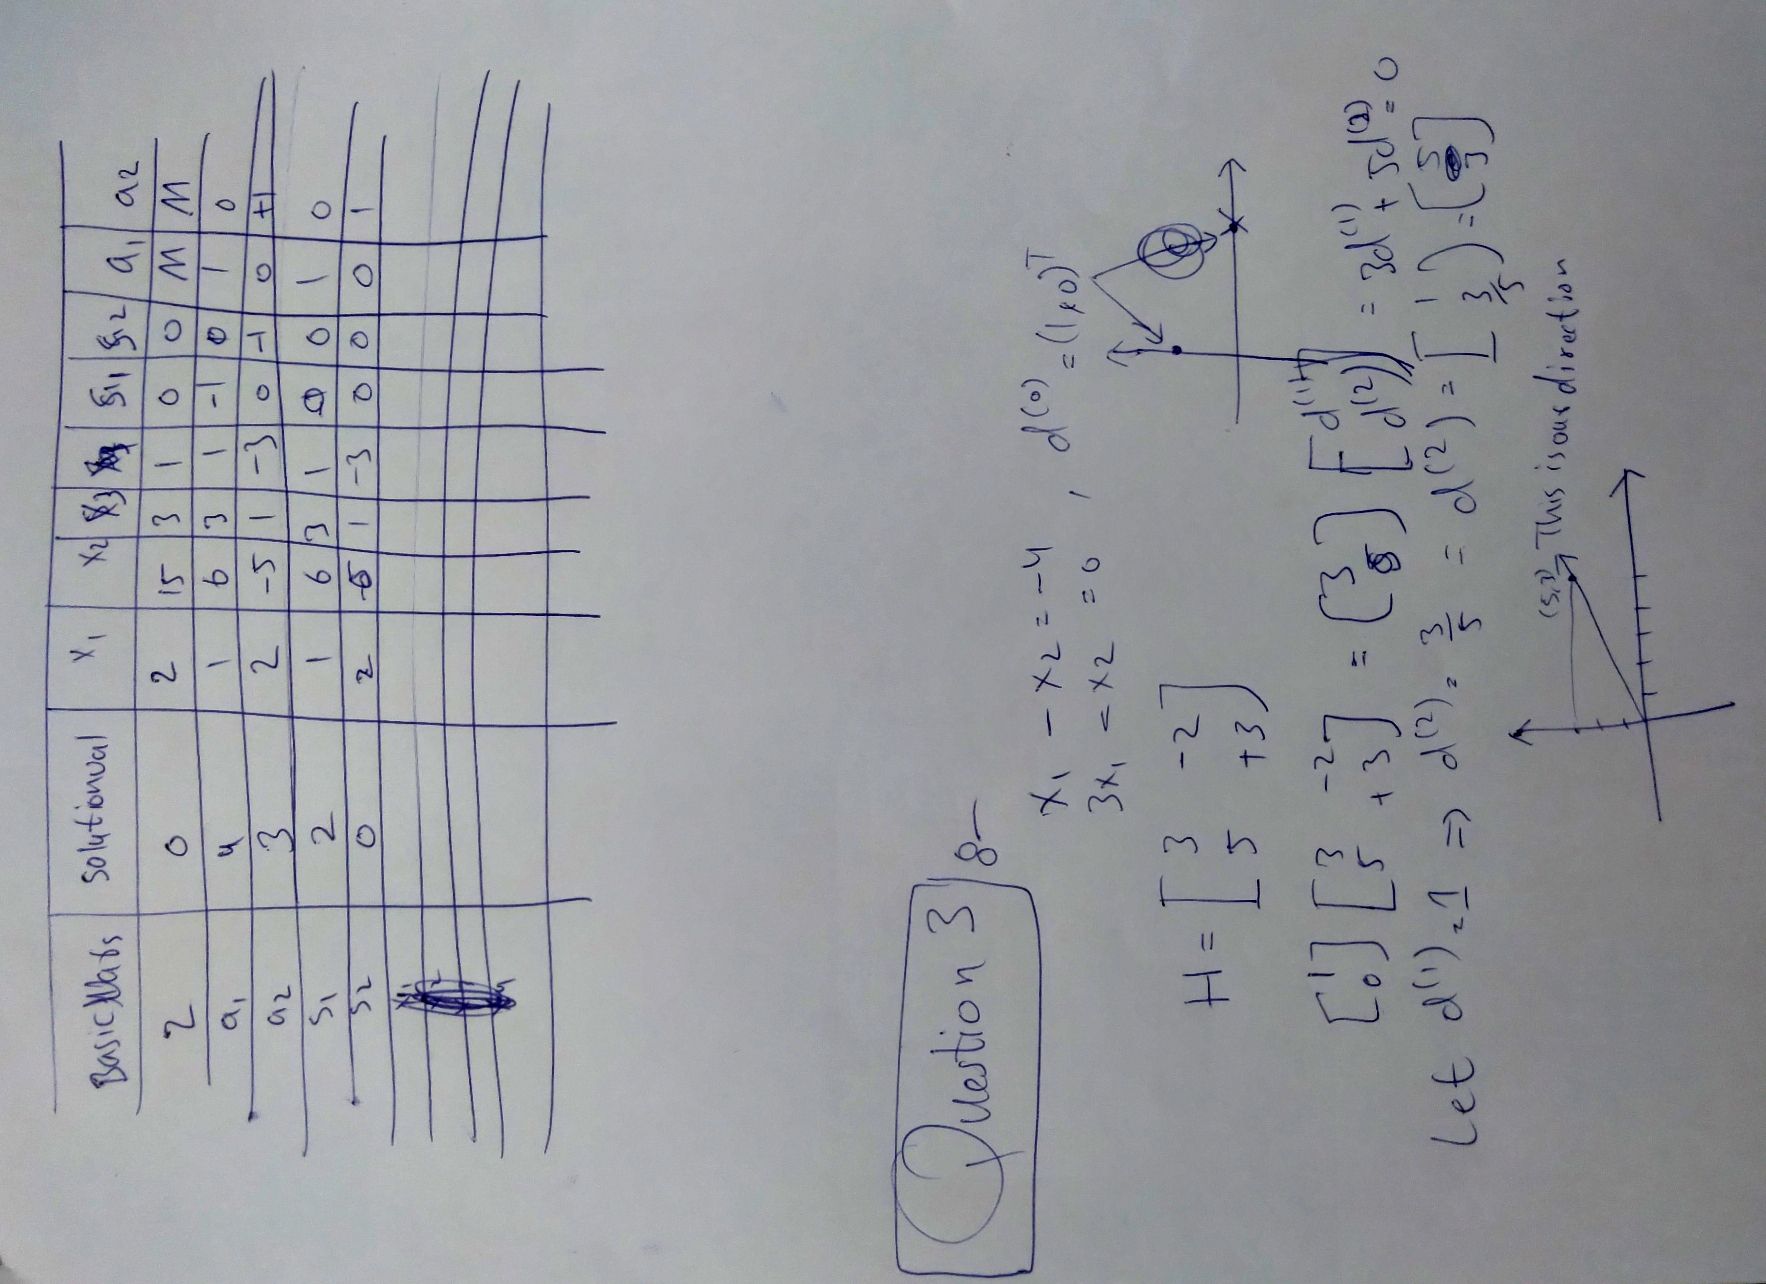 Basic Vars Solutionval x1 x2 x3 s1 s2 a1 a2
z 0 2 15 3 1 0 0 M M
a1 4 1 6 3 1 -1 0 1 0
a2 3 2 -5 1 -3 0 -1 0 +1
s1 2 1 6 3 1 0 0 1 0
s2 0 2 -5 1 -3 0 0 0 1
Question 3 8-
x1 - x2 = -4 , d(0) = (1 0)T
3x1 = x2 = 0
H = [3 -2
5 +3]
[1 0] [3 -2
5 +3] = (3 5) [d(1) d(2)] = 3d(1) + 5d(2) = 0
Let d(1) = 1 => d(2) = 3/5 = d(2) = [1 3/5] = [5 3]
(5,3) This is our direction